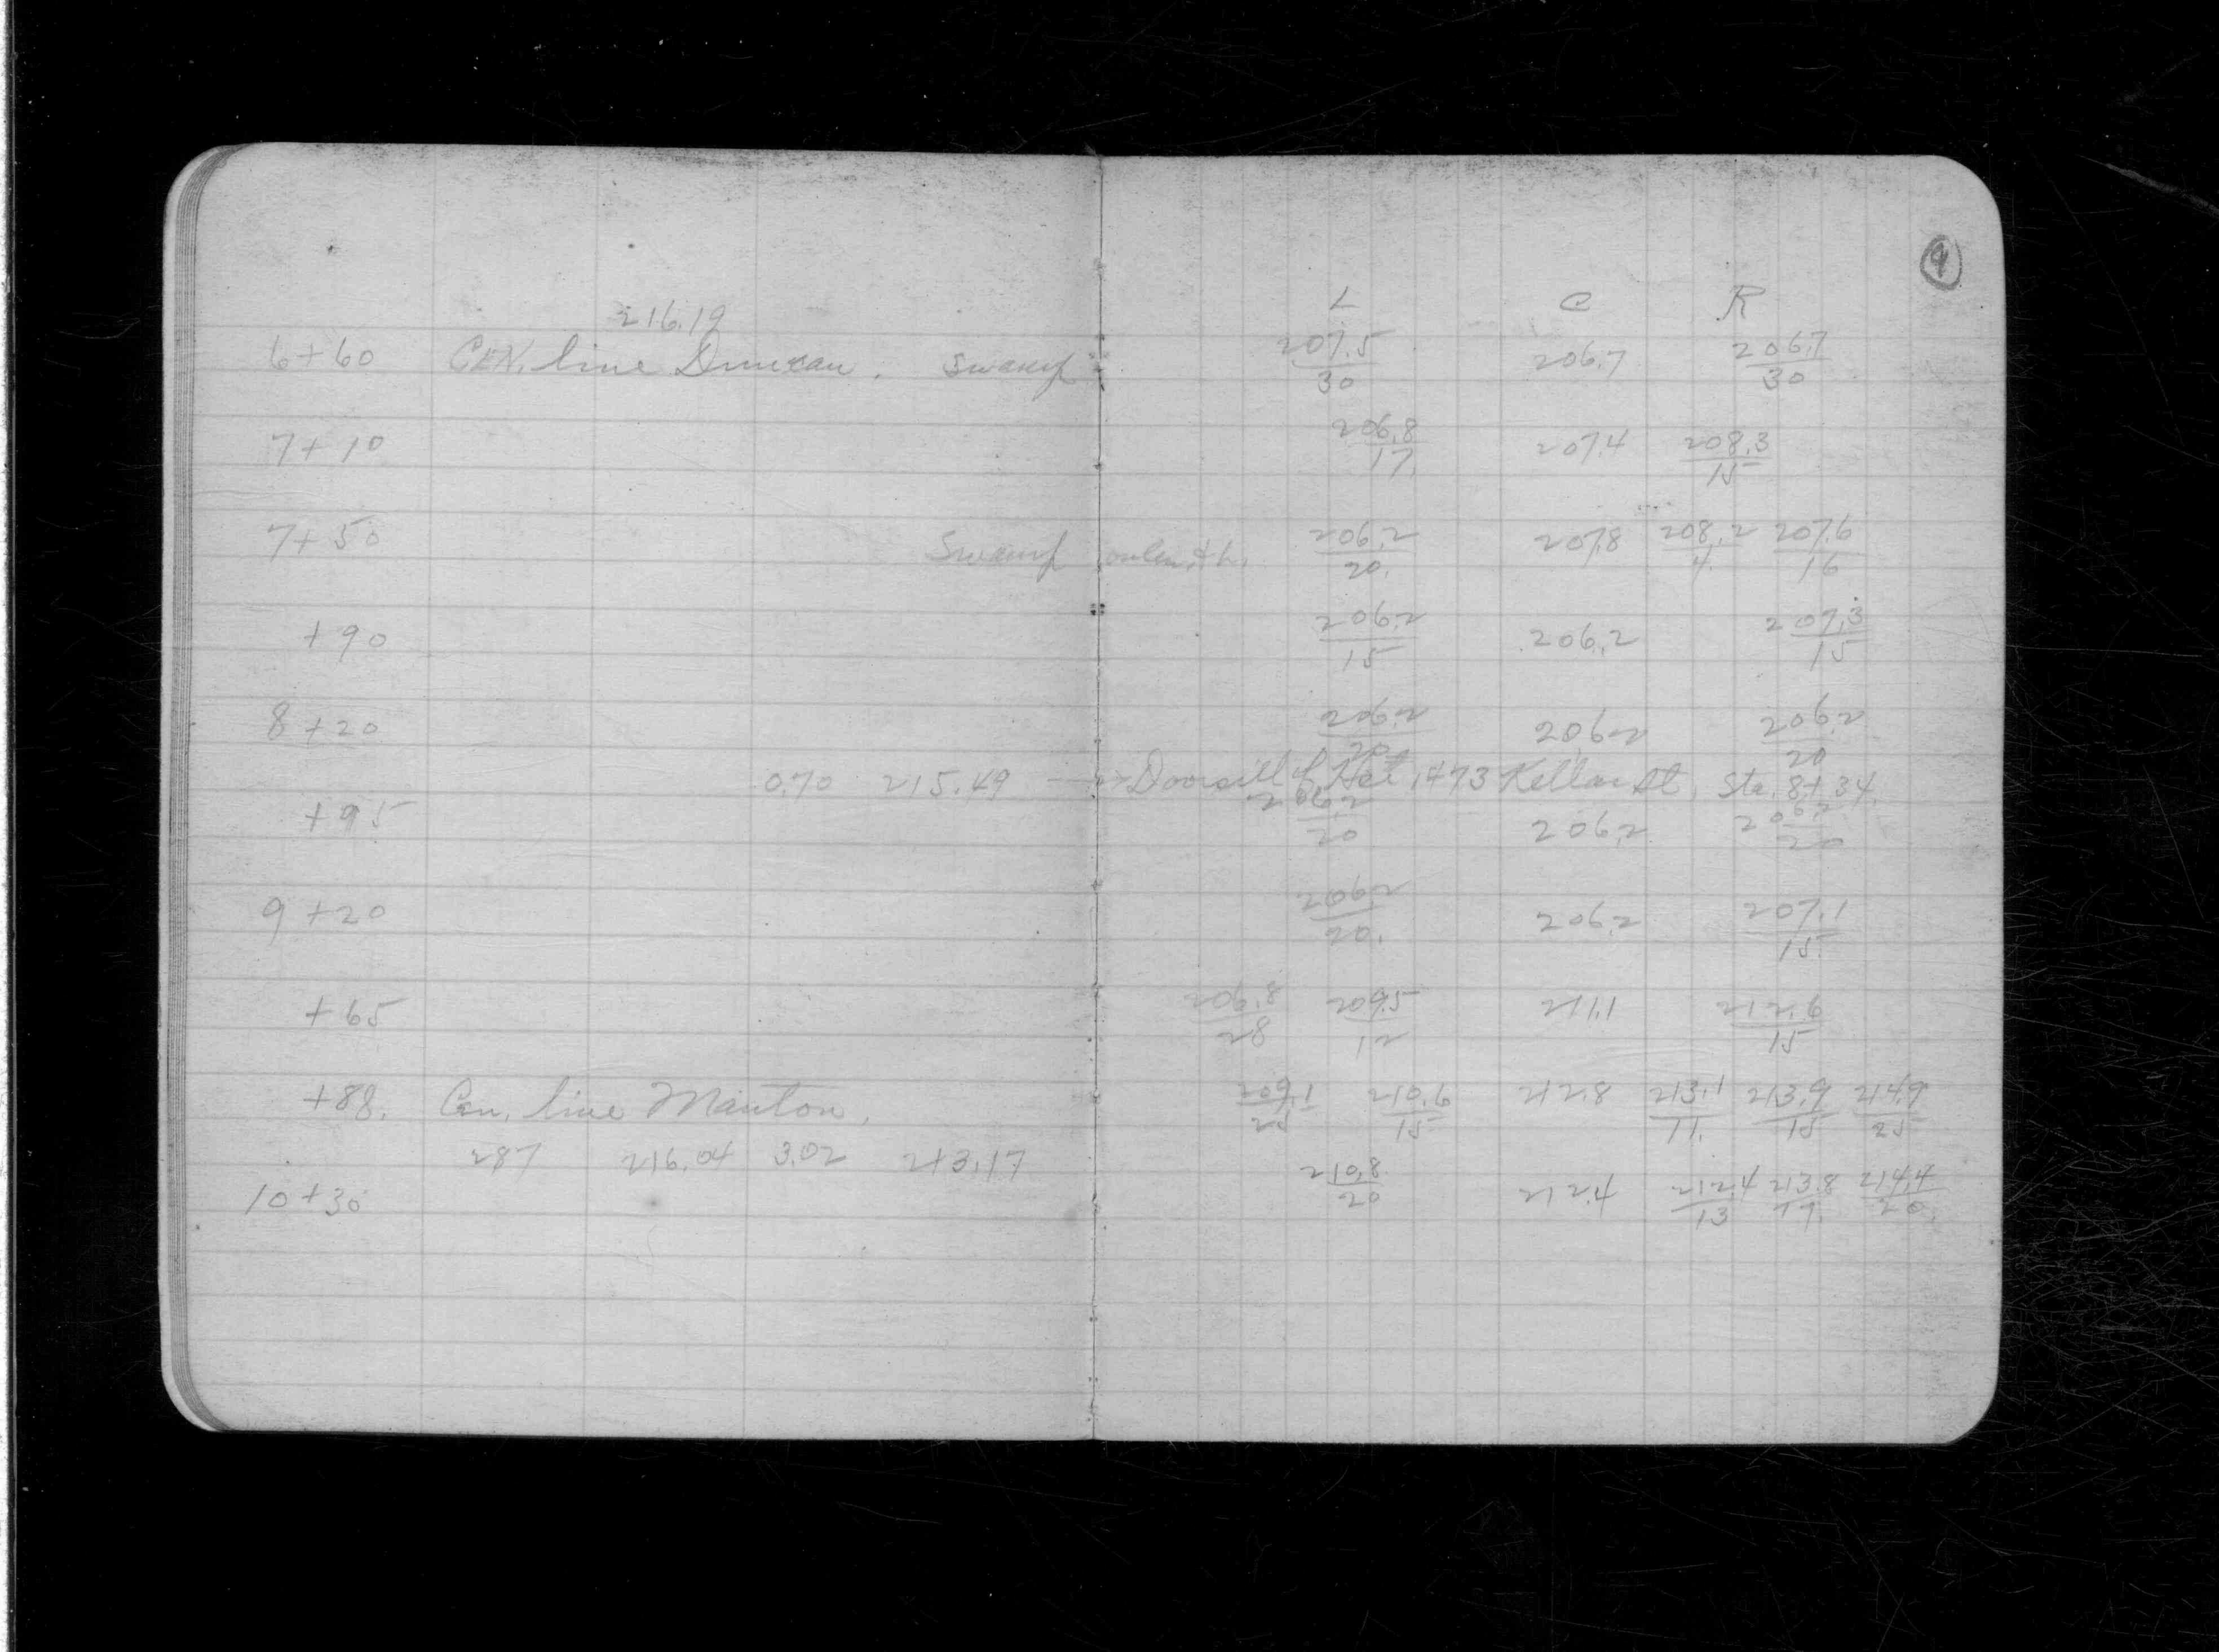 9
216.19
L C R
6+60 Cen. line Duncan. Swamp 207.5/30 206.7 206.7/30
7+10 206.8/17. 207.4 208.3/15
7+50 Swamp on cen. & L. 206.2/20. 207.8 208.2/4. 207.6/16
+90 206.2/15 206.2 207.3/15
8+20 206.2/20 206.2 206.2/20
0.70 215.49 → Doorsill of Hse 1473 Kellar St. Sta. 8+34.
+95 206.2/20 206.2 206.2/20
9+20 206.2/20. 206.2 207.1/15.
+65 206.8/28 209.5/12 211.1 212.6/15
+88. Cen. line Manton. 209.1/25 210.6/15 212.8 213.1/11. 213.9/15 214.9/25
287 216.04 3.02 213.17
10+30 210.8/20 212.4 212.4/13 213.8/17. 214.4/20.